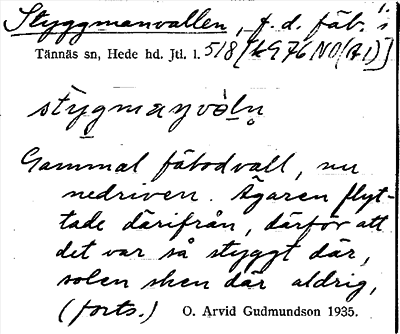 Styggmanvallen, f. d. fäb. 1.
Tännäs sn, Hede hd. Jtl. l. 5/8 [k976NO(A1)]
Gammal fäbodvall, nu
nedriven. Ägaren flyt-
tade därifrån, därför att
det var så styggt där,
solen sken där aldrig,
(forts.) O. Arvid Gudmundson 1935.